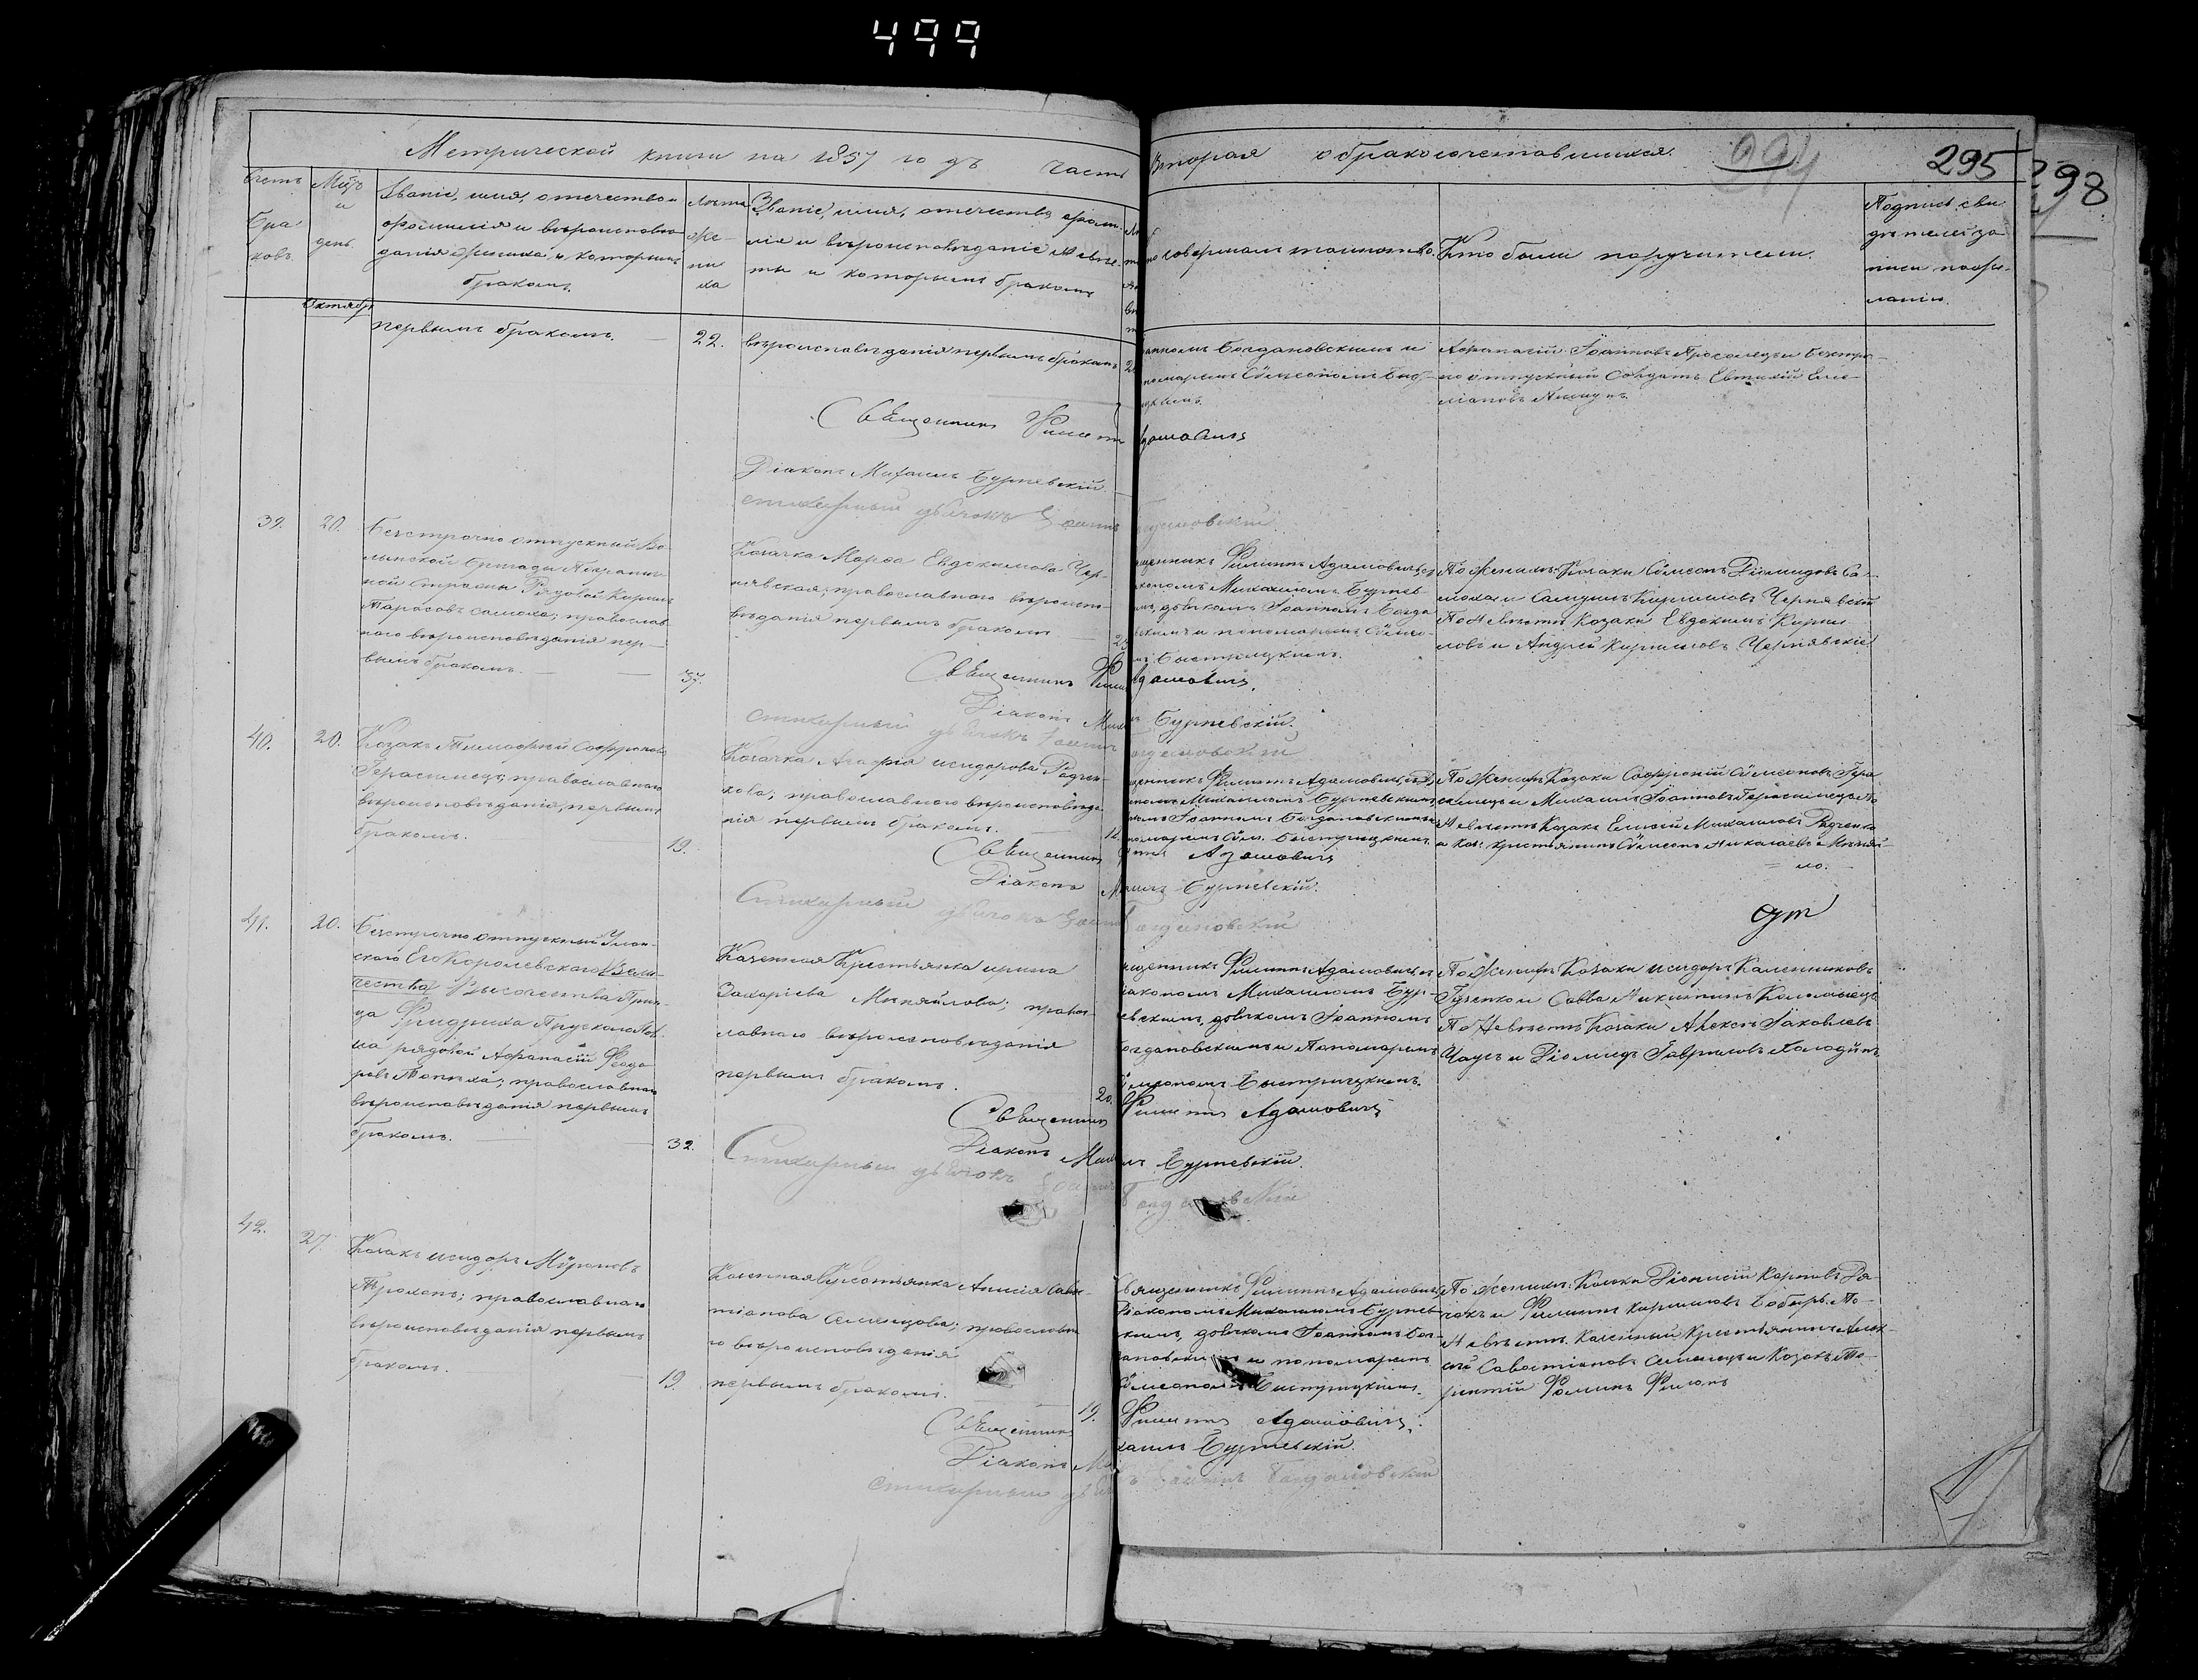 499
Метрической книги на 1857 годъ Часть Вторая о бракосочетавшихся.
295
298
Счетъ браковъ.
Мѣс. и день.
Званіе, имя, отчество
фамилія и вѣроисповѣ-
данія жениха и которымъ
бракомъ.
Лѣта
же-
ни
ха
Званіе, имя, отчество, фами-
лія и вѣроисповѣданіе невѣс-
ты и которымъ бракомъ
совершалъ таинство.
Кто были поручители.
Подпись сви-
дѣтелей за-
писи по же-
ланію.
Октябрь
первымъ бракомъ.
22.
вѣроисповѣданія первымъ бракомъ
Богдановскимъ и
Афанасій Іоанновъ и безсро-
чно отпускный Солдатъ Евтихій Еме-
ліановъ
Священникъ Филиппъ Адамовичъ
Діаконъ Михаилъ Бурчевскій
стихарный дьячокъ Іоаннъ Богдановскій
39.
20.
Безсрочно отпускный Во-
лынской бригады Погранич-
ной Стражи Рядовой Кирилъ
Тарасовъ Самоха; православ-
наго вѣроисповѣданія пер-
вымъ бракомъ.
37.
Козачка Марфа Евдокимова Чер-
нявская; православнаго вѣроиспо-
вѣданія первымъ бракомъ
Филиппъ Адамовичъ съ
Михаиломъ Бурчев-
дьячкомъ Іоанномъ Богда
и пономаремъ Сѵмео-
Быстрицкимъ.
По Женихѣ: Козаки Сѵмеонъ Діомидовъ Са-
моха и Самуилъ Кирилловъ Чернявскій
По Невѣстѣ Козаки Евдокимъ Кирил-
ловъ и Андрей Кирилловъ Чернявскіе
Священникъ Филиппъ Адамовичъ
Діаконъ Михаилъ Бурчевскій.
стихарный дьячокъ Іоаннъ Богдановскій
40.
20.
Козакъ Тимофѣй Софроновъ
Герасимецъ; православнаго
вѣроисповѣданія, первымъ
бракомъ.
19.
Козачка Агафія Исидорова Радчен-
кова; православнаго вѣроисповѣда-
нія первымъ бракомъ.
Филиппъ Адамовичъ съ
Михаиломъ Бурчевскимъ
Іоанномъ Богдановскимъ и
пономаремъ Сѵм. Быстрицкимъ.
По Женихѣ Козаки Софроній Сѵмеоновъ Гера-
симецъ и Михаилъ Іоанновъ Герасимецъ По
Невѣстѣ Козакъ Елисей Михаиловъ Радченко
и каз. крестьянинъ Сѵмеонъ Николаевъ Миняй-
ло.
Священникъ Филиппъ Адамовичъ
Діаконъ Михаилъ Бурчевскій.
Стихарный дьячокъ Іоаннъ Богдановскій
41.
20.
Безсрочно отпускный Улан-
скаго Его Королевскаго Вели-
чества Высочества Прин-
ца Фридриха Прускаго Пол-
ка рядовой Афанасій Феодо-
ровъ Топиха; православнаго
вѣроисповѣданія первымъ
бракомъ.
32.
Казенная Крестьянка Ирина
Захаріева Миняйлова; правос-
лавнаго вѣроисповѣданія
первымъ бракомъ.
20.
Филиппъ Адамовичъ съ
Діакономъ Михаиломъ Бур-
чевскимъ, дьячкомъ Іоанномъ
Богдановскимъ и Пономаремъ
Сѵмеономъ Быстрицкимъ.
По Женихѣ Козаки Исидоръ Каленниковъ
и Савва Никитинъ Коломыецъ
По Невѣстѣ Козаки Алексѣй Іаковлевъ
и Діомидъ Гавриловъ
Священникъ Филиппъ Адамовичъ
Діаконъ Михаилъ Бурчевскій.
Стихарный дьячокъ Іоаннъ Богдановскій
42.
27.
Козакъ Исидоръ Мѵроновъ
православнаго
вѣроисповѣданія первымъ
бракомъ.
19.
Казенная Крестьянка Анисія Савас-
тіанова Семенцова; православна-
го вѣроисповѣданія
первымъ бракомъ.
19.
Священникъ Филиппъ Адамовичъ съ
Діакономъ Михаиломъ Бурчев-
скимъ, дьячкомъ Іоанномъ Бог-
дановскимъ и пономаремъ
Сѵмеономъ Быстрицкимъ.
По Женихѣ: Козаки Діонисій Карповъ
и Филиппъ Кирилловъ Бобырь. По
Невѣстѣ. Казенный Крестьянинъ Алек-
сѣй Савастіановъ Семенецъ и Козакъ Те-
рентій Фоминъ
Священникъ Филиппъ Адамовичъ
Діаконъ Михаилъ Бурчевскій.
Стихарный дьячокъ Іоаннъ Богдановскій